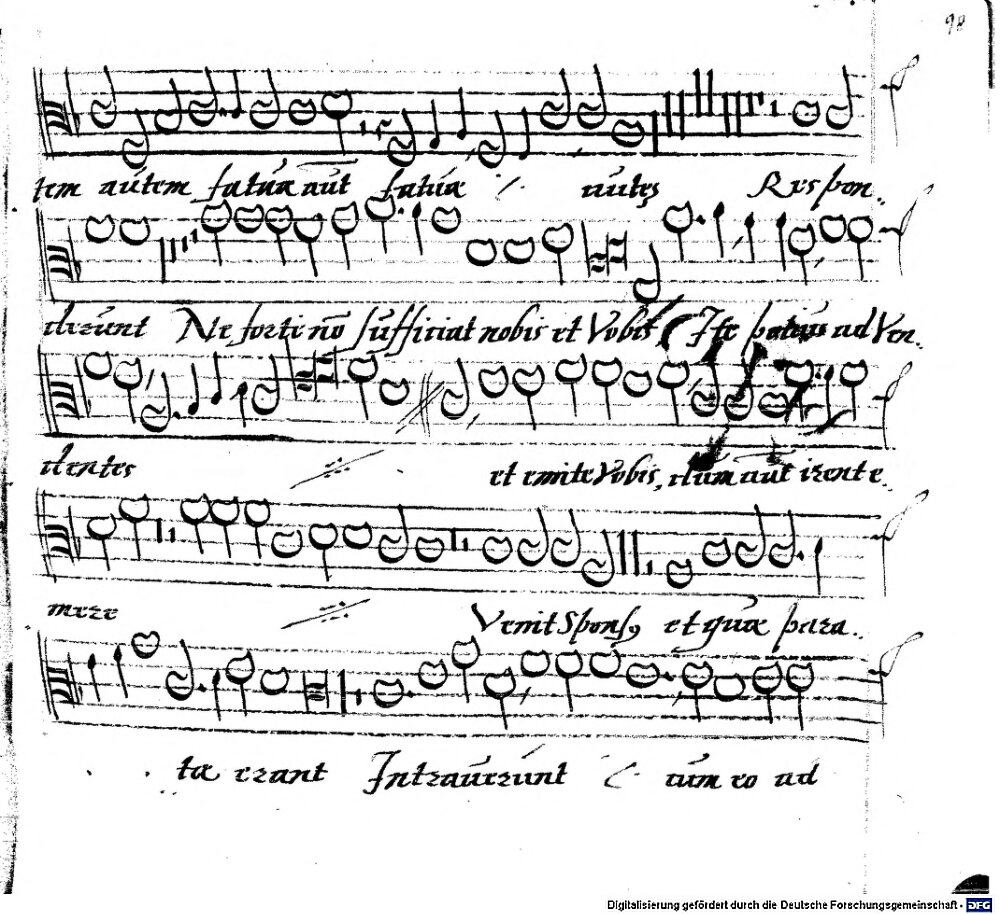 98
tem autem fatuæ aut fatuæ autẽ Respon..
derunt Ne forte nõ sufficiat nobis et Vobis Ite potius ad Ven..
dentes et emite Vobis, dum aut irent e..
mere Venit Sponsꝰ et quæ para..
tæ erant Intrauerunt cum eo ad
Digitalisierung gefördert durch die Deutsche Forschungsgemeinschaft - DFG